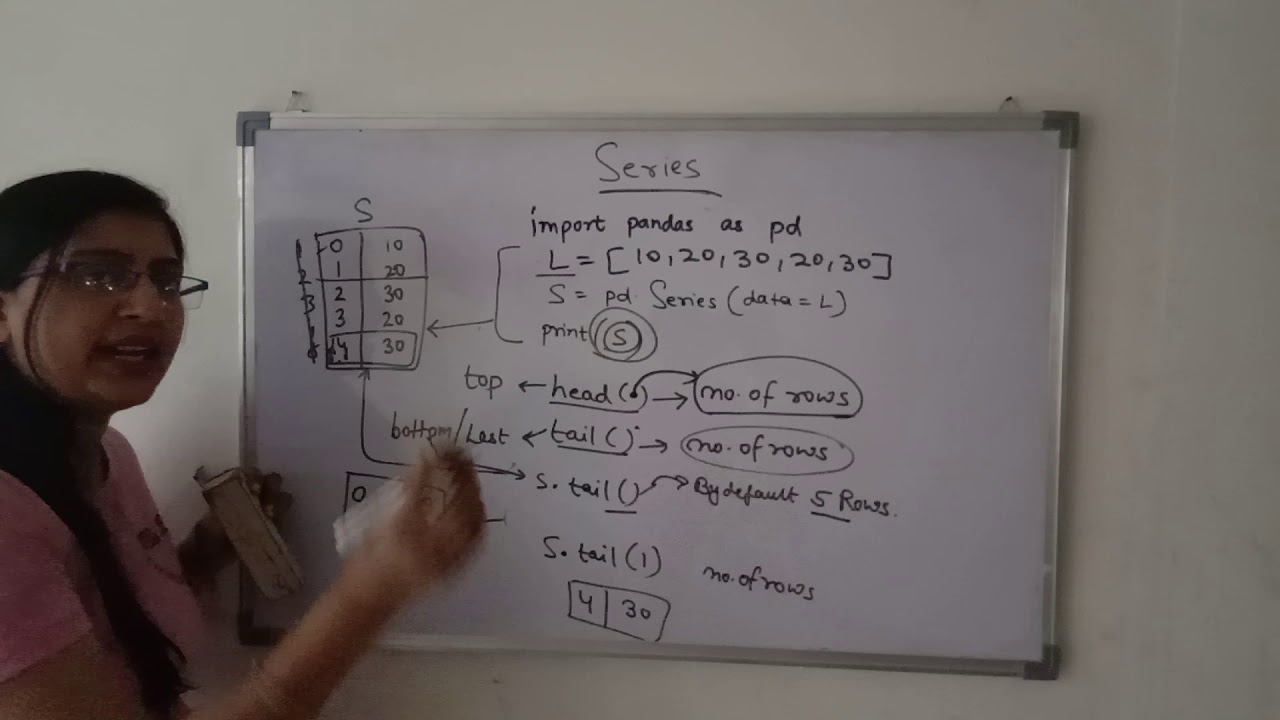 Series
S
import pandas as pd
L = [10, 20, 30, 20, 30]
S = pd. Series (data = L)
print (S)
1 0 10
2 1 20
3 2 30
3 20
4 30
top ← head ( ) → no. of rows
bottom/Last ← tail ( ) → no. of rows
S. tail () → By default 5 Rows.
0
S. tail (1) no. of rows
4 30